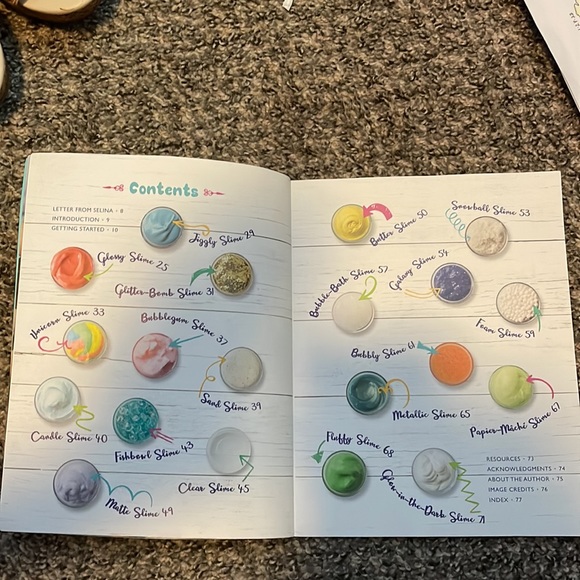 Contents
LETTER FROM SELINA • 8
INTRODUCTION • 9
GETTING STARTED • 10
Jiggly Slime 29
Glossy Slime 25
Glitter-Bomb Slime 31
Unicorn Slime 33
Bubblegum Slime 37
Sand Slime 39
Candle Slime 40
Fishbowl Slime 43
Clear Slime 45
Matte Slime 49
Butter Slime 50
Snowball Slime 53
Bubble-Bath Slime 57
Galaxy Slime 54
Foam Slime 59
Bubbly Slime 61
Metallic Slime 65
Papier-Mâché Slime 67
Flubby Slime 68
Glow-in-the-Dark Slime 71
RESOURCES • 73
ACKNOWLEDGMENTS • 74
ABOUT THE AUTHOR • 75
IMAGE CREDITS • 76
INDEX • 77